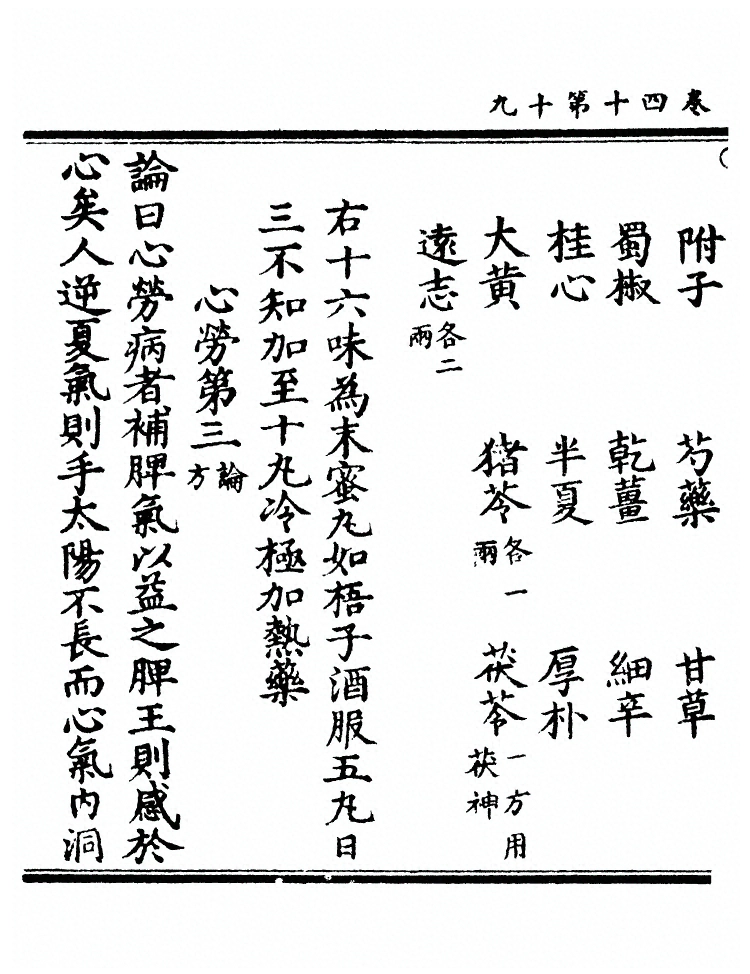 九十第十四卷
附子 芍藥 甘草
蜀椒 乾薑 細辛
桂心 半夏 厚朴
大黄 猪苓各一兩 茯苓一方用茯神
遠志各二兩
右十六味為末蜜丸如梧子酒服五丸日
三不知加至十丸冷極加熱藥
心勞第三論方
論曰心勞病者補脾氣以益之脾王則感於
心矣人逆夏氣則手太陽不長而心氣内洞